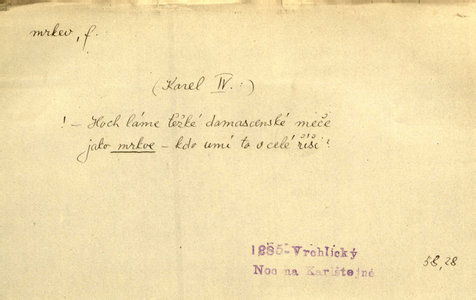 mrkev, f.
(Karel IV.:)
! – Hoch láme težké damascenské meče
jako mrkve – kdo umí to v celé říši?
1885-Vrchlický
Noc na Karlštejně
58, 28